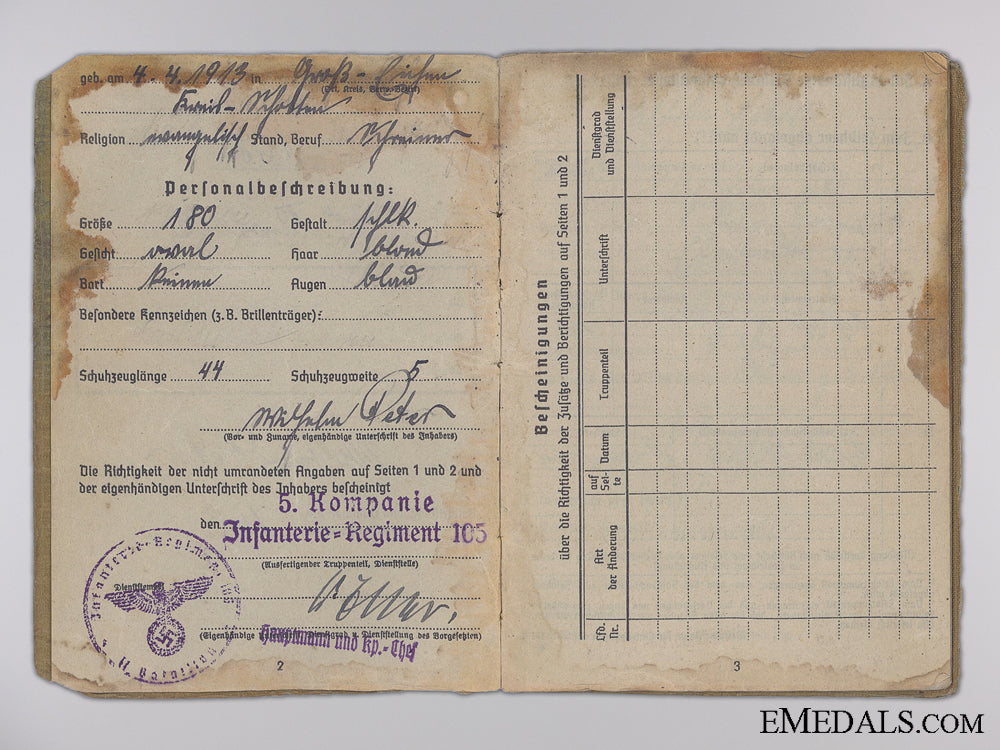 geb. am 4. 4. 1913 in Groß-Eichen
(Ort, Kreis, Verw.-Bezirk)
Kreis-Schotten
Religion evangelisch Stand, Beruf Schreiner
Personalbeschreibung:
Größe 180 Gestalt schlk.
Gesicht oval Haar blond
Bart keinen Augen blau
Besondere Kennzeichen (z. B. Brillenträger):
Schuhzeuglänge 44 Schuhzeugweite 5
Wilhelm Peter
(Vor- und Zuname, eigenhändige Unterschrift des Inhabers)
Die Richtigkeit der nicht umrandeten Angaben auf Seiten 1 und 2 und
der eigenhändigen Unterschrift des Inhabers bescheinigt
5. Kompanie
den
Infanterie-Regiment 105
(Ausfertigender Truppenteil, Dienststelle)
Infanterie-Regiment 105
II. Bataillon
Dienststempel
(Eigenhändige Dienstgrad u. Dienststellung des Vorgesetzten)
Hauptmann und Kp.-Chef
2
Bescheinigungen
über die Richtigkeit der Zusätze und Berichtigungen auf Seiten 1 und 2
Lfd. Nr.
Art der Änderung
auf Sei-te
Datum
Truppenteil
Unterschrift
Dienstgrad und Dienststellung
3
EMEDALS.COM